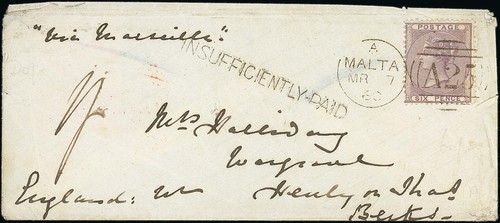 "via Marseille".
INSUFFICIENTLY-PAID
A
MALTA
MR 7
60
A25
POSTAGE
SIX PENCE
Mrs Halliday
Wargrave
England: Henley on Thas
Berks-